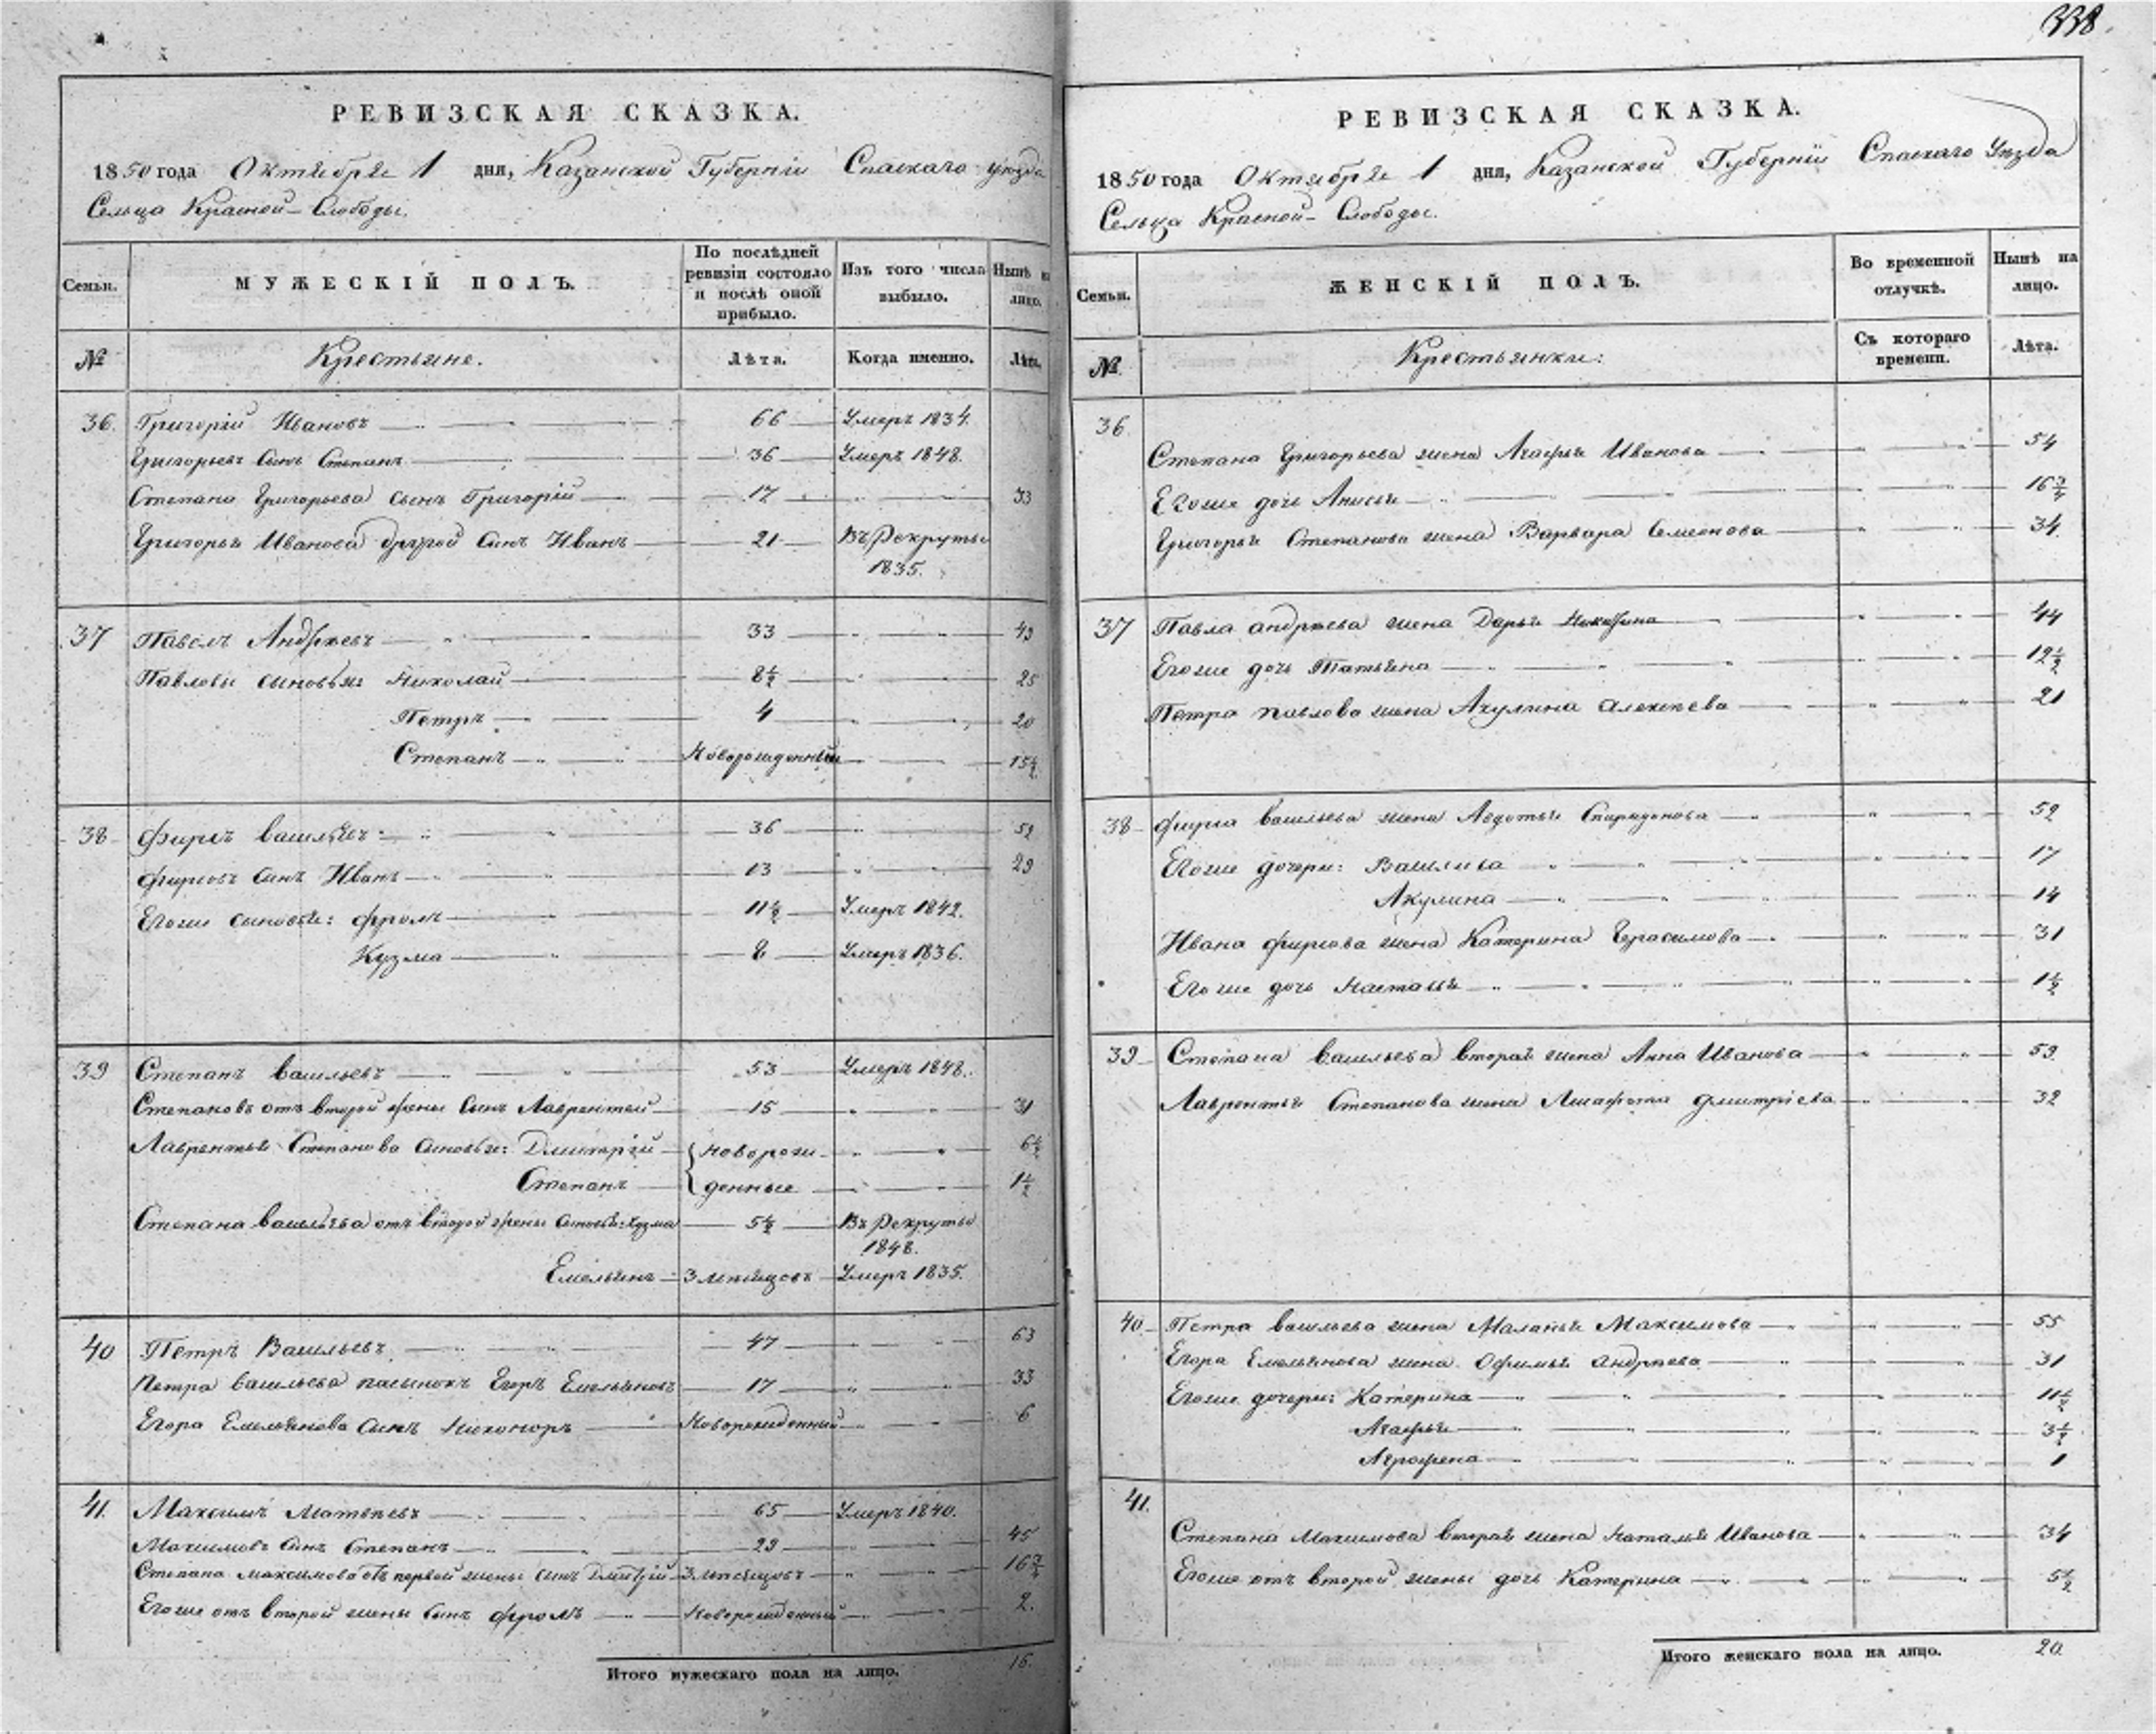 338.
РЕВИЗСКАЯ СКАЗКА.
1850 года Октября 1 дня, Казанской Губерніи Спаскаго уезда
Сельца Красной-Слободы.
Семьи. МУЖЕСКІЙ ПОЛЪ. По послѣдней ревизіи состояло и послѣ оной прибыло. Изъ того числа выбыло. Нынѣ на лицо.
№ Крестьяне. Лѣта. Когда именно. Лѣта.
36. Григорій Ивановъ 66 Умеръ 1834.
Григорьевъ сынъ Степанъ 36 Умеръ 1848.
Степана Григорьева сынъ Григорій 17 33
Григорья Иванова другой сынъ Иванъ 21 Въ Рекруты
1835.
37 Павелъ Андреевъ 33 49
Павловы сыновья: Николай 8½ 25
Петръ 4 20
Степанъ Новорожденный 15½
38 Фирсъ Васильевъ 36 52
Фирсовъ сынъ Иванъ 13 29
Егоже сыновья: Фролъ 11½ Умеръ 1842.
Кузма 8 Умеръ 1836.
39 Степанъ Васильевъ 53 Умеръ 1848.
Степановъ отъ второй жены сынъ Лаврентей 15 31
Лаврентья Степанова сыновья: Дмитрій новорож- 6½
Степанъ денные 1½
Степана Васильева отъ второй жены сыновья: Кузма 5½ Въ Рекруты
1848.
Емельянъ 3 месяцовъ Умеръ 1835.
40 Петръ Васильевъ 47 63
Петра Васильева пасынокъ Егоръ Емельяновъ 17 33
Егора Емельянова сынъ Никоноръ Новорожденный 6
41. Максимъ Матвеевъ 65 Умеръ 1840.
Максимовъ сынъ Степанъ 29 45
Степана Максимова отъ первой жены сынъ Дмитрій 3 месяцовъ 16¾
Егоже отъ второй жены сынъ Фролъ Новорожденный 2.
Итого мужескаго пола на лицо. 16.
РЕВИЗСКАЯ СКАЗКА.
1850 года Октября 1 дня, Казанской Губерніи Спаскаго Уезда
Сельца Красной-Слободы.
Семьи. ЖЕНСКІЙ ПОЛЪ. Во временной отлучкѣ. Нынѣ на лицо.
№ Крестьянки: Съ котораго времени. Лѣта.
36
Степана Григорьева жена Агафья Иванова 54
Егоже дочь Анисья 16¾
Григорья Степанова жена Варвара Семенова 34
37 Павла Андреева жена Дарья 44
Егоже дочь Татьяна 12½
Петра Павлова жена Акулина Алексеева 21
38 Фирса Васильева жена Авдотья Спиридонова 52
Егоже дочери: Василиса 17
Акулина 14
Ивана Фирсова жена Катерина Герасимова 31
Егоже дочь Настасья 1½
39 Степана Васильева вторая жена Анна Иванова 59
Лаврентья Степанова жена Дмитріева 32
40. Петра Васильева жена Маланья Максимова 55
Егора Емельянова жена Офимья Андреева 31
Егоже дочери: Катерина 11½
Агафья 3½
Аграфена 1
41.
Степана Максимова вторая жена Наталья Иванова 34
Егоже отъ второй жены дочь Катерина 5½
Итого женскаго пола на лицо. 20.